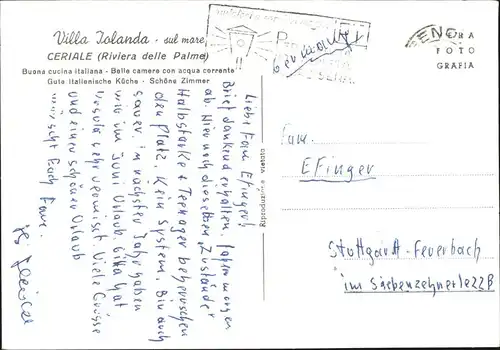 Villa Iolanda - sul mare
CERIALE (Riviera delle Palme)
Buona cucina italiana - Belle camere con acqua corrente
Gute italienische Küche - Schöne Zimmer
VERA
FOTO
GRAFIA
Riproduzione vietata
Liebe Fam. Efinger!
Brief dankend erhalten, fahren morgen
ab. Hier noch dieselben "Zustände"
Halbstarke + Teenager beherrschen
den Platz. Kein System. Bin auch
sauer. Im nächsten Jahr haben
wir im Juni Urlaub. Gika hat
Ursula sehr vermisst. Viele Grüsse
und einen schönen Urlaub
wünscht Euch Fam.
Fam.
Efinger
Stuttgart-Feuerbach
im Siebenzehnerle 22B